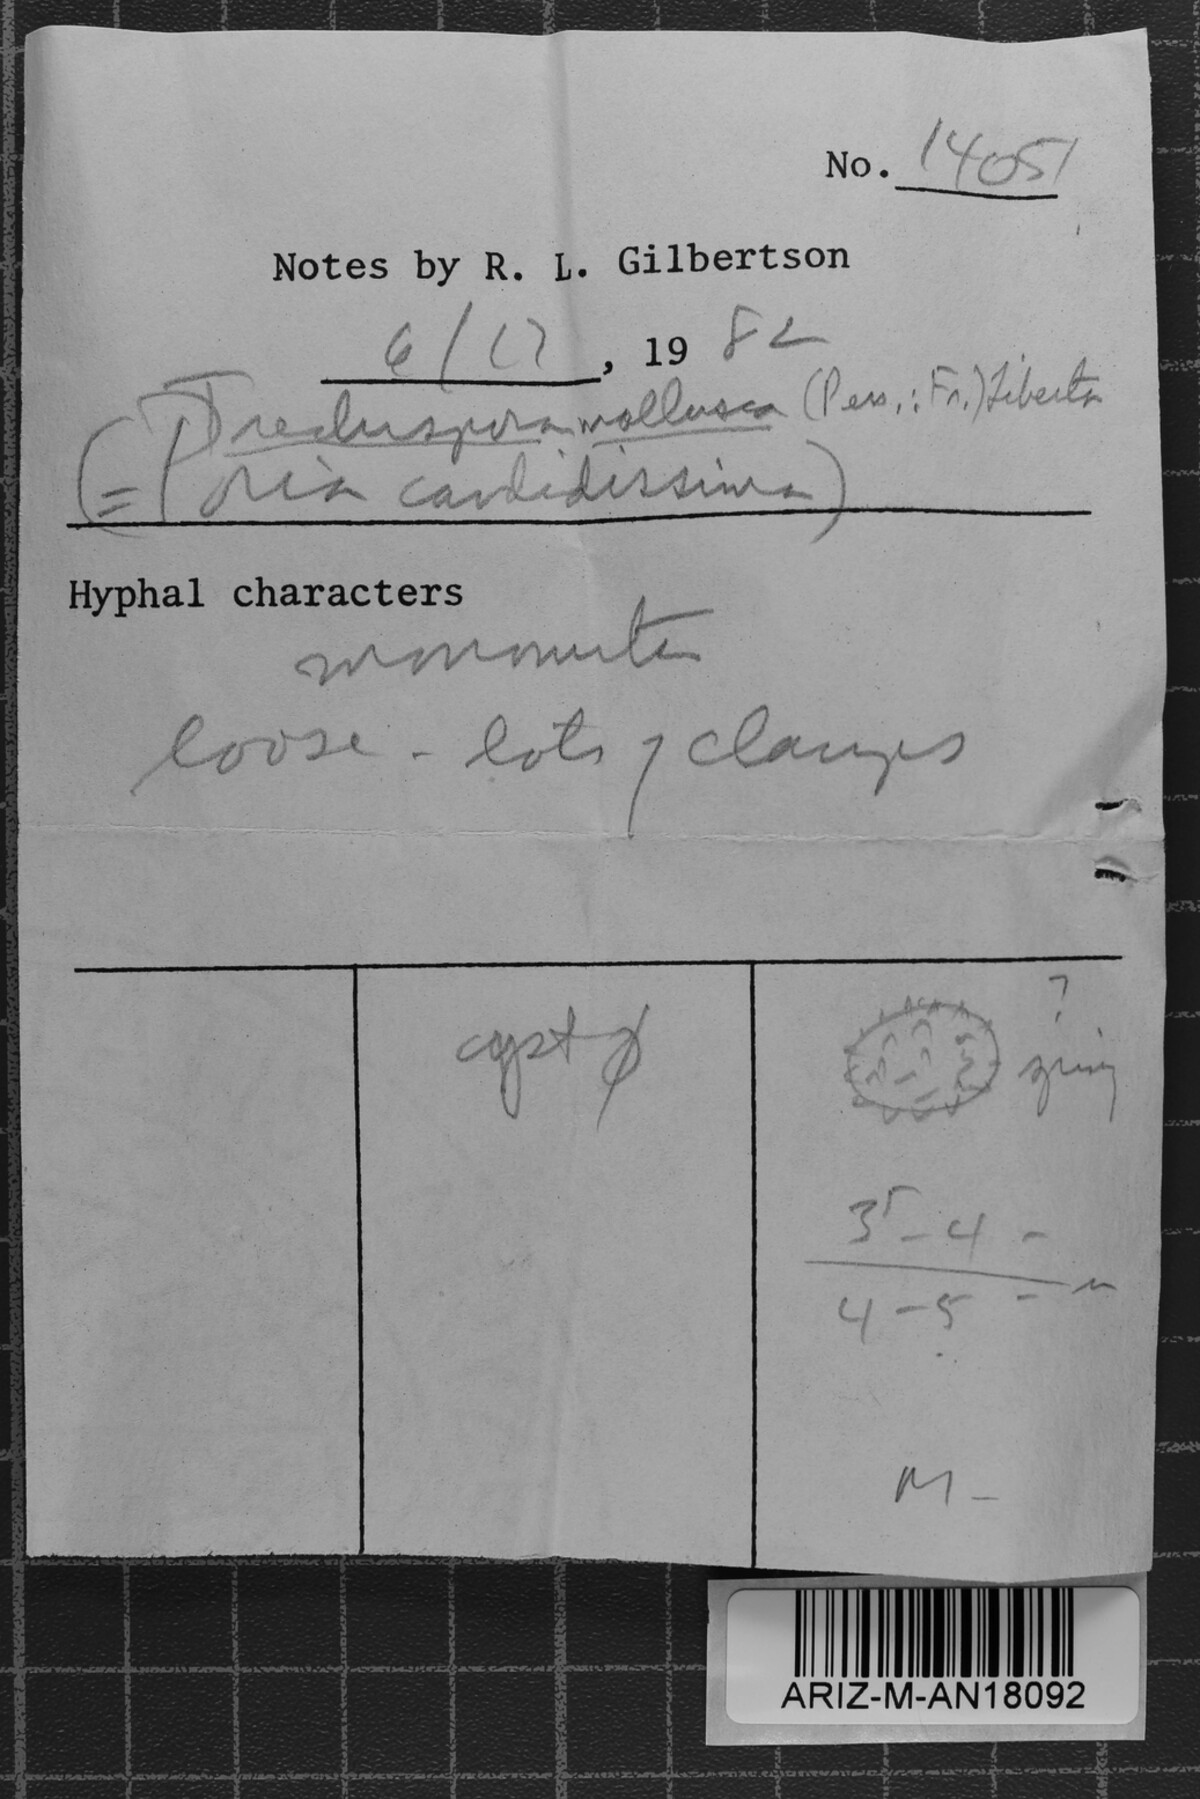 No. 14051
Notes by R. L. Gilbertson
6/17, 1982
Trechispora mollusca (Pers.: Fr.) Liberta
(= Poria candidissima)
Hyphal characters
monomitic
loose - lots of clamps
cyst ∅
?
3⁵ - 4 -
4 - 5 -
M -
ARIZ-M-AN18092